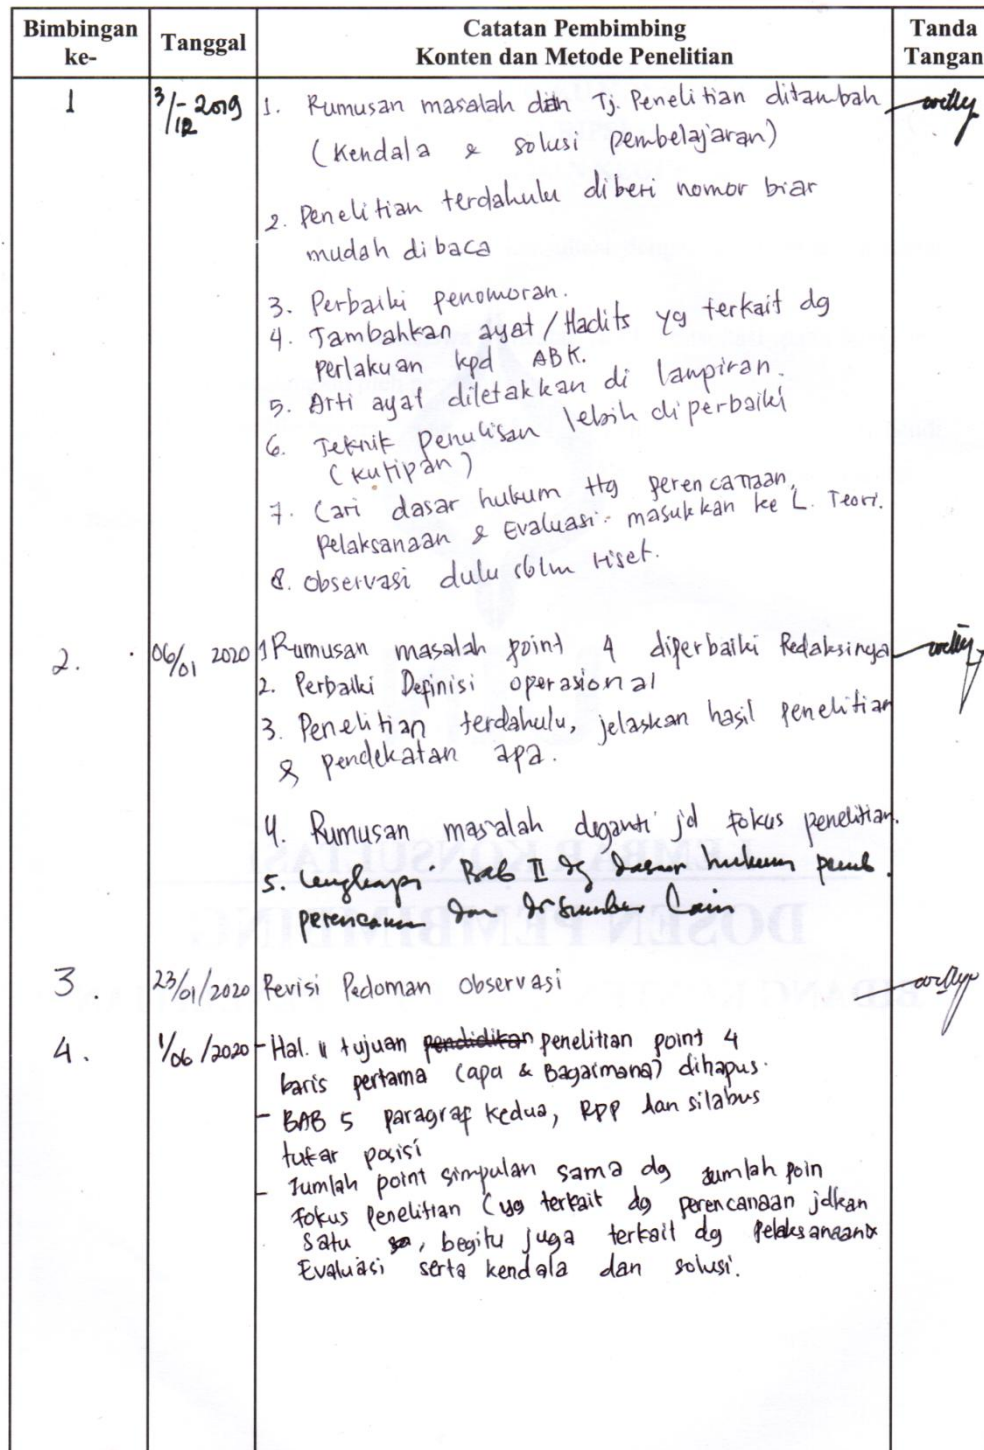 Bimbingan ke-
Tanggal
Catatan Pembimbing
Konten dan Metode Penelitian
Tanda Tangan
1
3/12-2019
1. Rumusan masalah dan Tj. Penelitian ditambah
(Kendala & solusi pembelajaran)
2. Penelitian terdahulu diberi nomor biar
mudah dibaca
3. Perbaiki penomoran.
4. Tambahkan ayat/Hadits yg terkait dg
perlakuan kpd ABK.
5. Arti ayat diletakkan di lampiran.
6. Teknik penulisan lebih diperbaiki
(kutipan)
7. Cari dasar hukum ttg perencanaan,
pelaksanaan & Evaluasi. masukkan ke L. Teori.
8. Observasi dulu sblm riset.
2.
06/01 2020
1 Rumusan masalah point 4 diperbaiki Redaksinya
2. Perbaiki Definisi operasional
3. Penelitian terdahulu, jelaskan hasil penelitian
& pendekatan apa.
4. Rumusan masalah diganti jd fokus penelitian.
5. Lengkapi Bab II dg dasar hukum
perencanaan dan lain
3.
23/01/2020
Revisi Pedoman Observasi
4.
1/06/2020
- Hal. 11 tujuan pendidikan penelitian point 4
baris pertama (apa & Bagaimana) dihapus.
- BAB 5 paragraf kedua, RPP dan silabus
tukar posisi
- Jumlah point simpulan sama dg jumlah poin
fokus penelitian (yg terkait dg perencanaan jdkan
satu, begitu juga terkait dg Pelaksanaan &
Evaluasi serta kendala dan solusi.